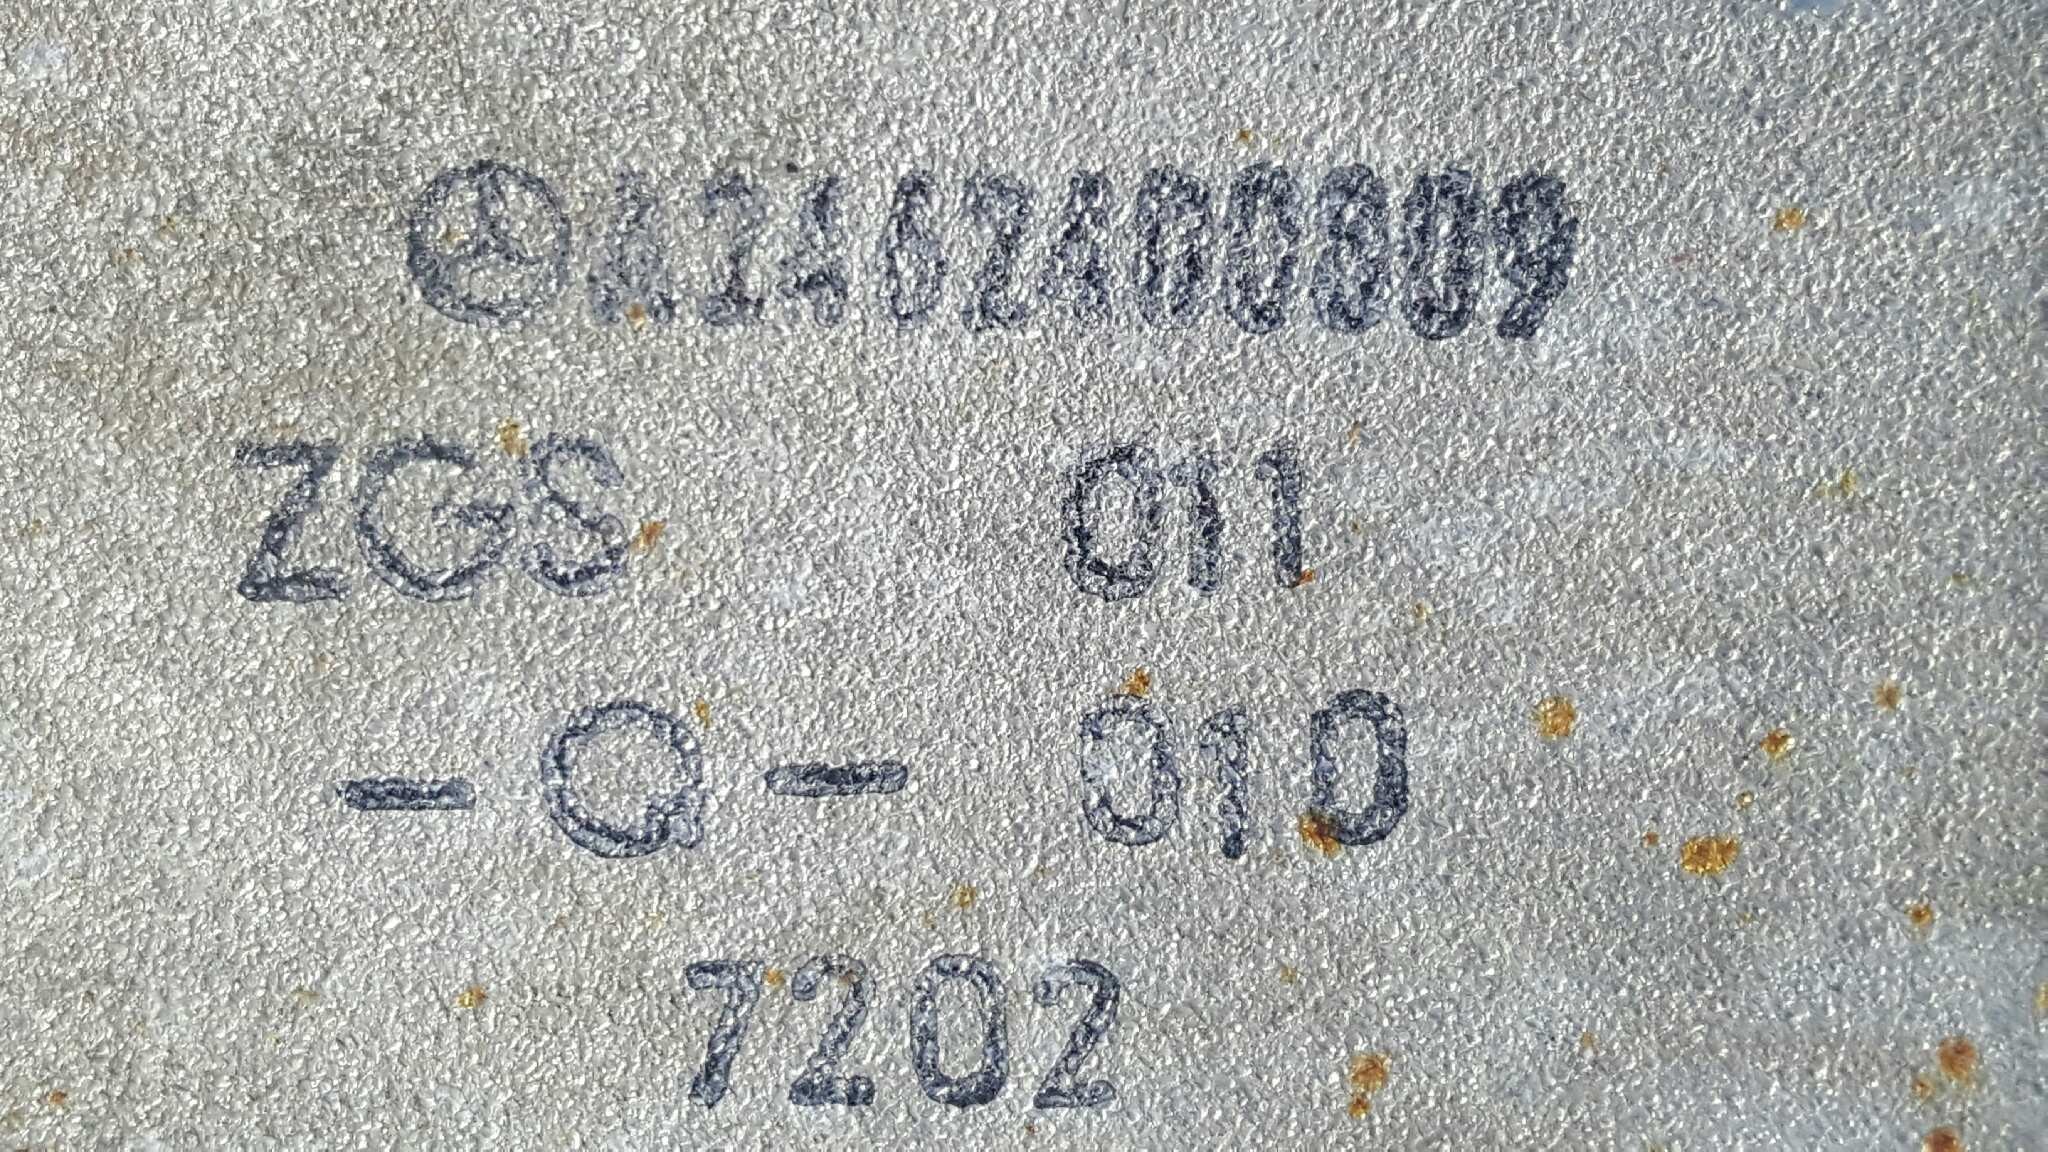 A2462400809
ZGS 011
-Q- 010
7202